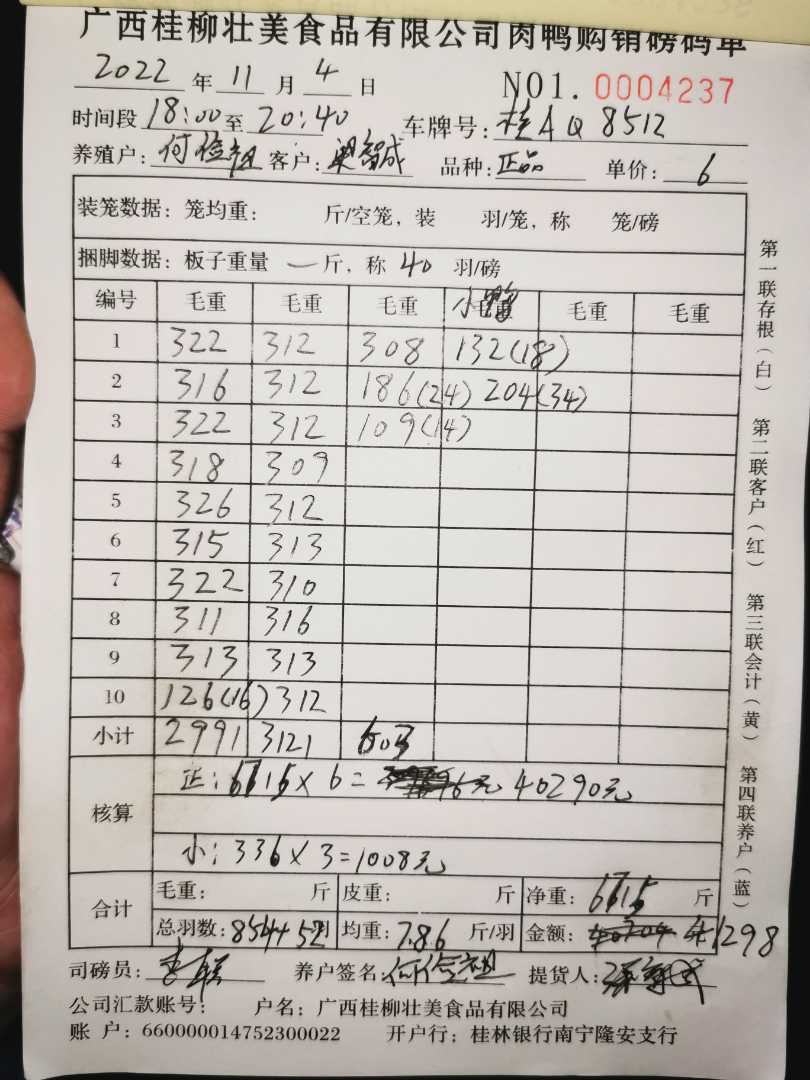 广西桂柳壮美食品有限公司肉鸭购销磅码单
2022 年 11 月 4 日 NO1. 0004237
时间段 18:00 至 20:40 车牌号: 桂AQ8512
养殖户: 何俭祖 客户: 梁智诚 品种: 正品 单价: 6
装笼数据: 笼均重: 斤/空笼, 装 羽/笼, 称 笼/磅
捆脚数据: 板子重量 一 斤, 称 40 羽/磅
编号 毛重 毛重 毛重 小 毛重 毛重
1 322 312 308 132(18)
2 316 312 186(24) 204(34)
3 322 312 109(14)
4 318 309
5 326 312
6 315 313
7 322 310
8 311 316
9 313 313
10 126(16) 312
小计 2991 3121 603
核算
正: 6715 × 6 = 40290元
小: 336 × 3 = 1008元
合计
毛重: 斤 皮重: 斤 净重: 6715 斤
总羽数: 854+52 羽 均重: 7.86 斤/羽 金额: 41298
司磅员: 养户签名: 何俭祖 提货人:
公司汇款账号: 户名: 广西桂柳壮美食品有限公司
账 户: 660000014752300022 开户行: 桂林银行南宁隆安支行
第一联存根(白)
第二联客户(红)
第三联会计(黄)
第四联养户(蓝)